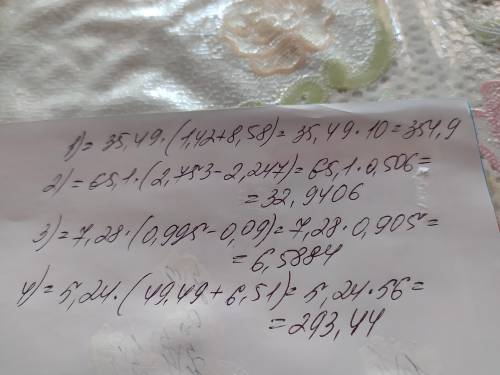 1) = 35,49·(1,42+8,58)= 35,49·10=354,9
2) = 65,1·(2,753-2,247)=65,1·0,506=
= 32,9406
3) = 7,28·(0,995-0,09)=7,28·0,905=
= 6,5884
4) = 5,24·(49,49+6,51)= 5,24·56=
= 293,44